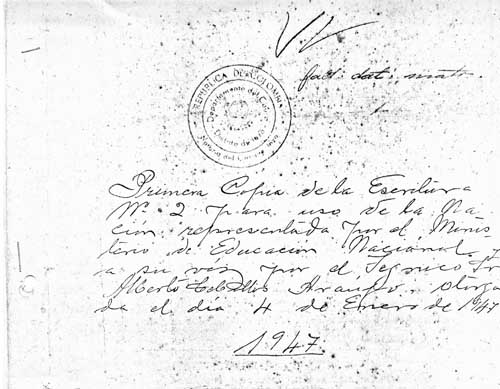 REPUBLICA DE COLOMBIA
Departamento del Cauca
Primera Copia de la Escritura
Nº 2 para uso de la Na-
ción representada por el Minis
terio de Educación Nacional y
a su vez por el Tecnico Sr
Alberto Ceballos Araujo. Otorga
da el día 4 de Enero de 1947
1947.